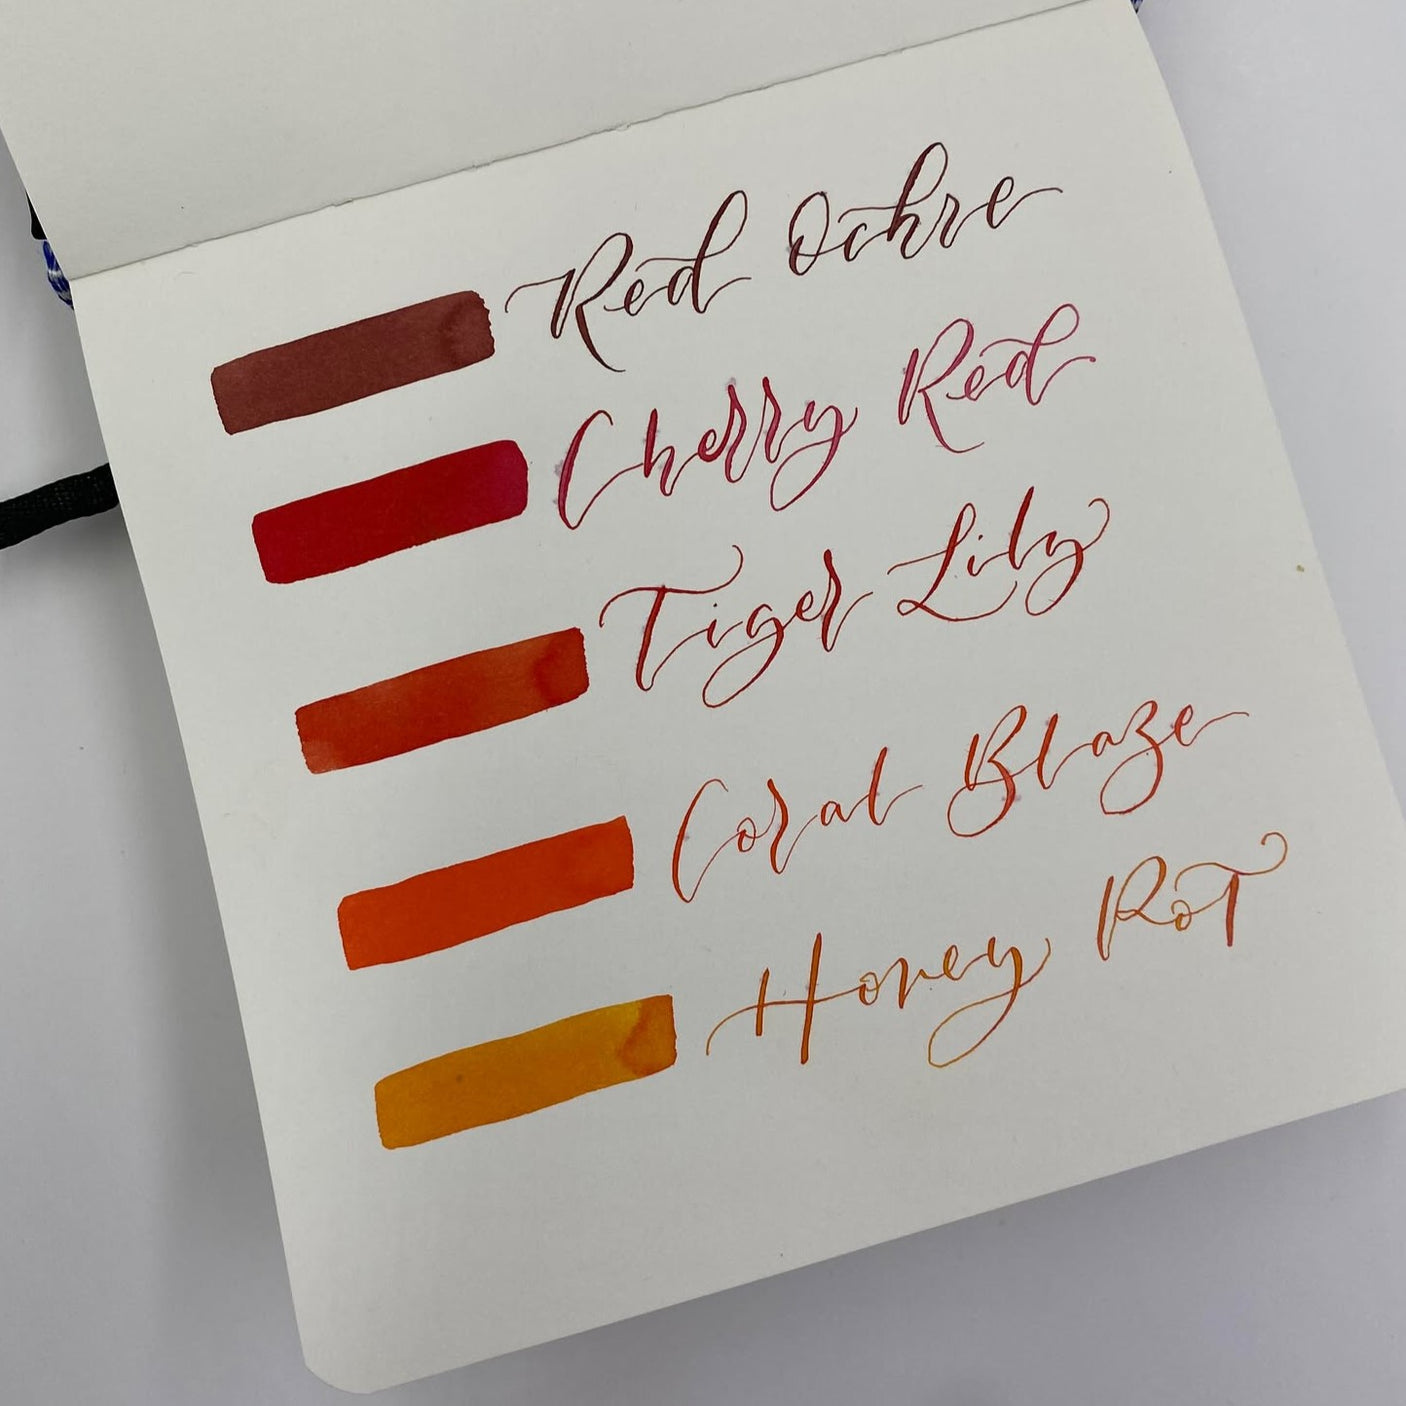 Red Ochre
Cherry Red
Tiger Lily
Coral Blaze
Honey Pot